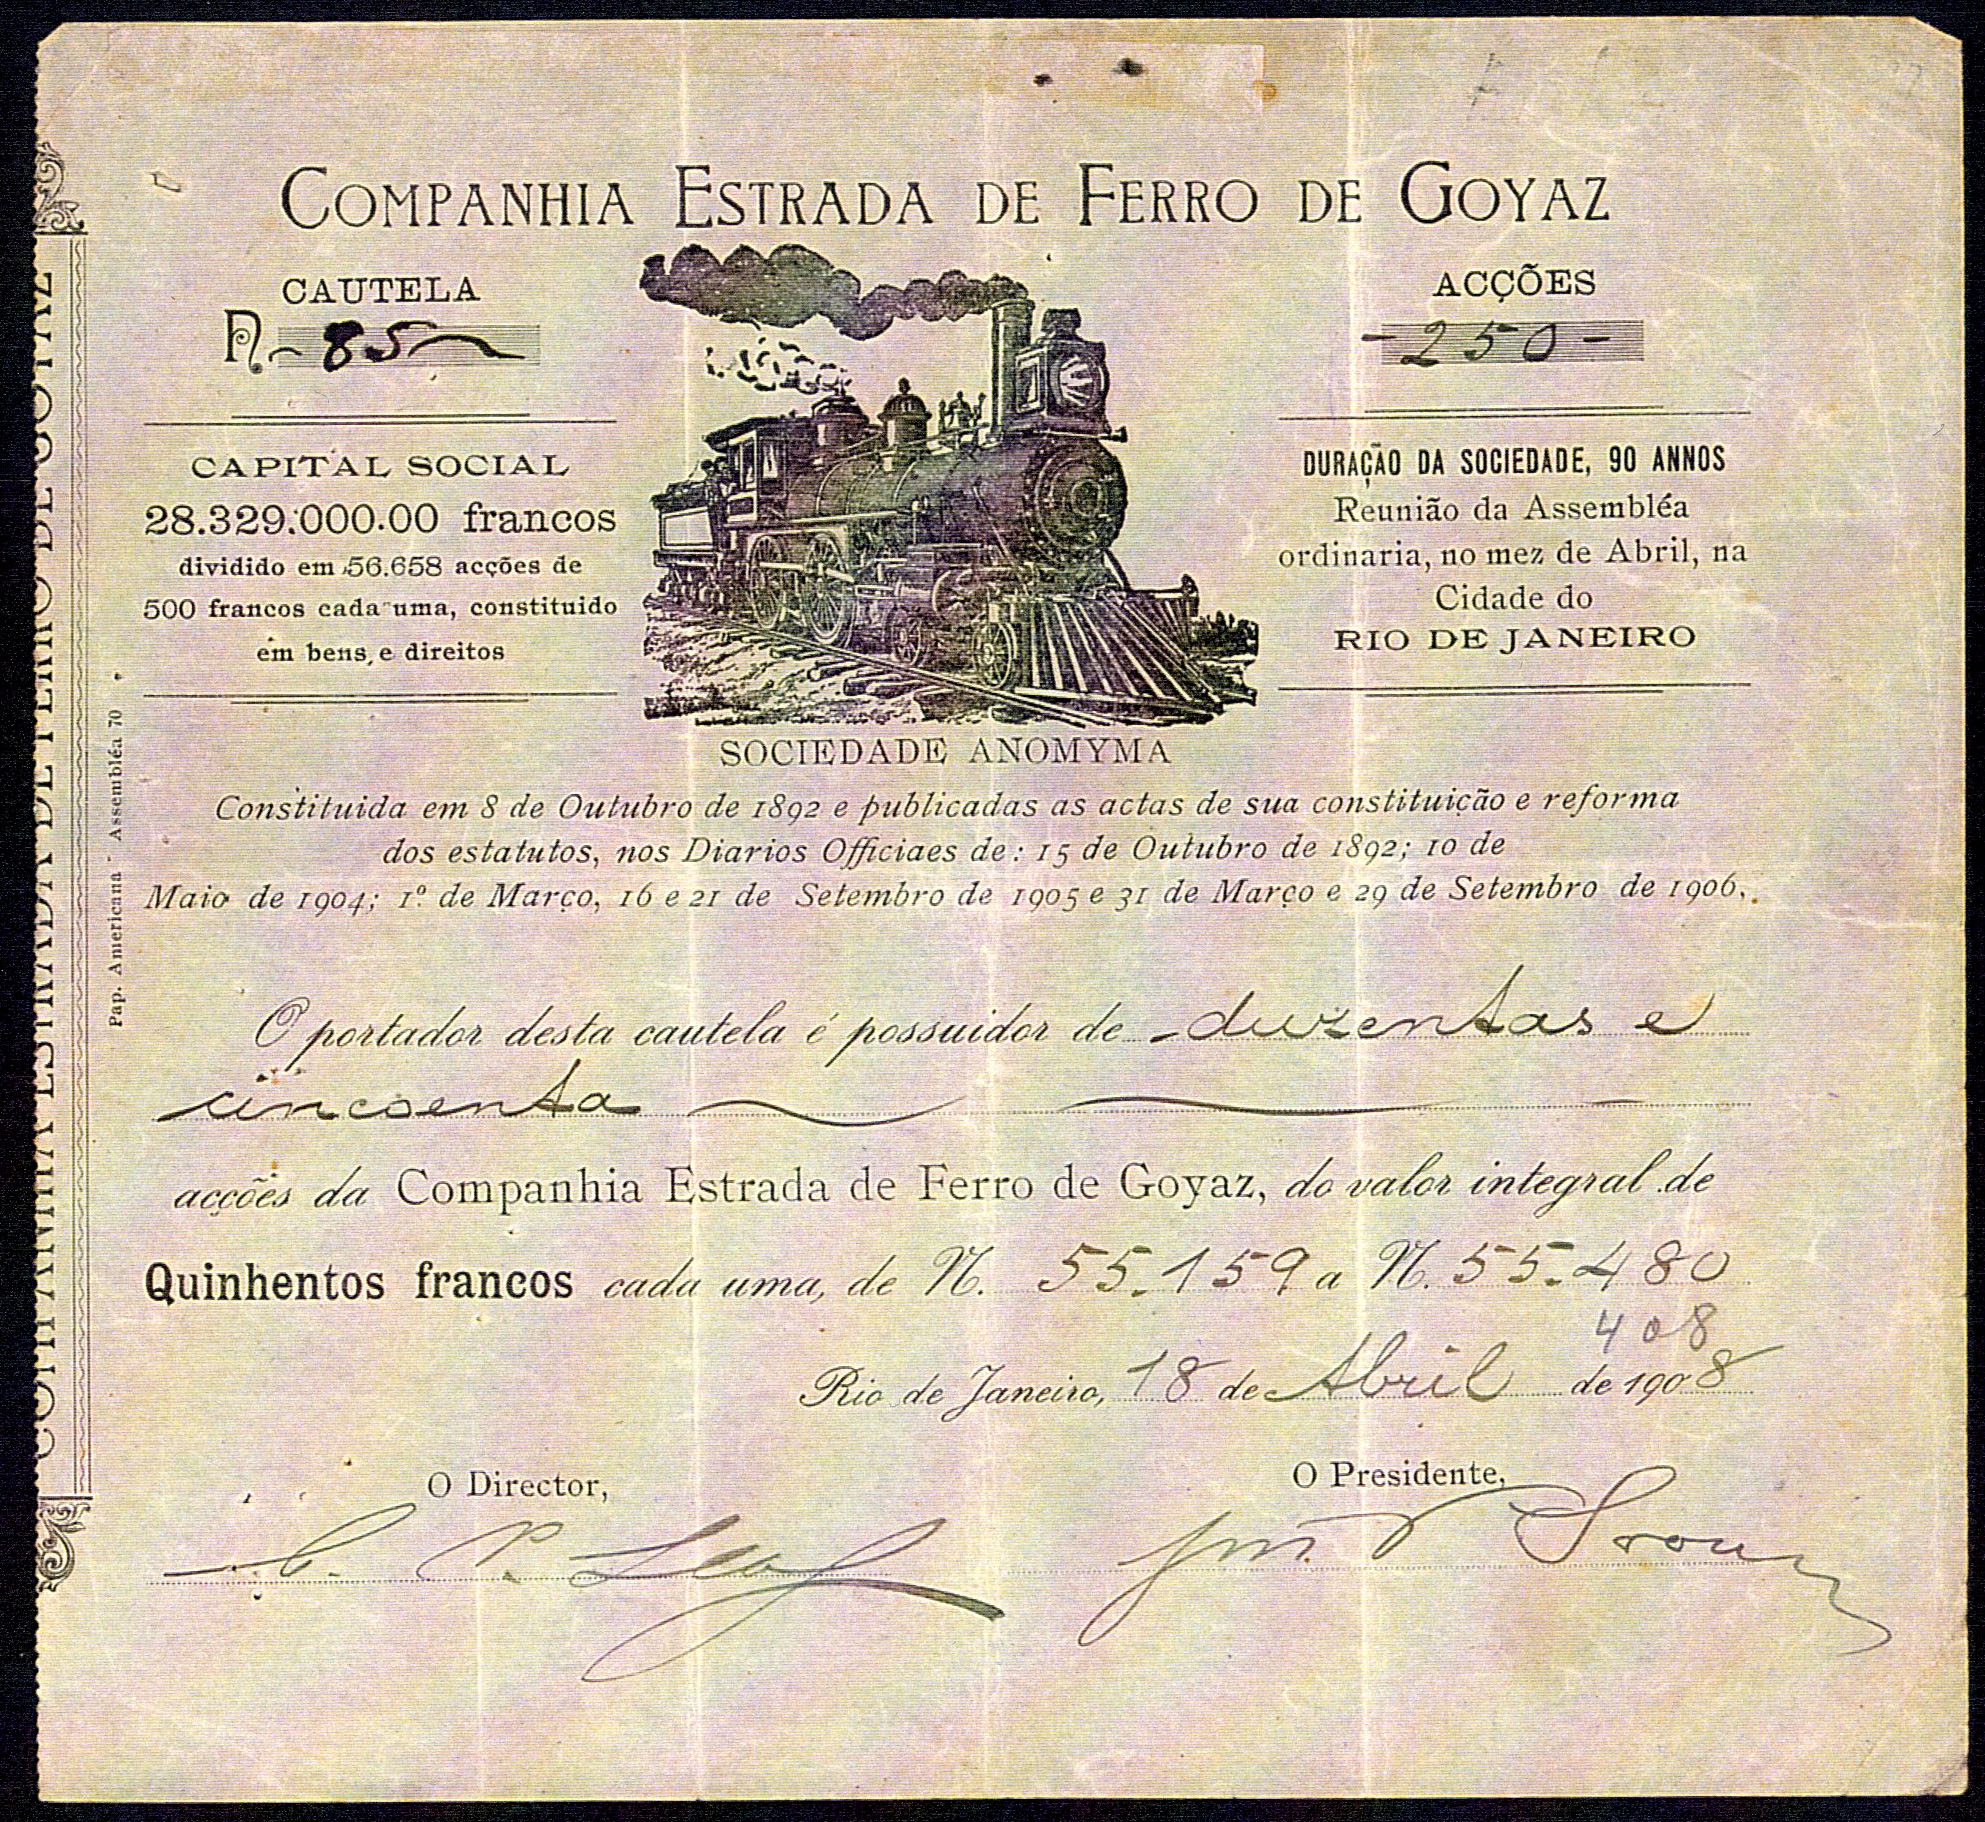 COMPANHIA ESTRADA DE FERRO DE GOYAZ
CAUTELA
N. 85
CAPITAL SOCIAL
28.329.000.00 francos
dividido em 56.658 acções de
500 francos cada uma, constituido
em bens e direitos
ACÇÕES
- 250 -
DURAÇÃO DA SOCIEDADE, 90 ANNOS
Reunião da Assembléa
ordinaria, no mez de Abril, na
Cidade do
RIO DE JANEIRO
SOCIEDADE ANOMYMA
Constituida em 8 de Outubro de 1892 e publicadas as actas de sua constituição e reforma
dos estatutos, nos Diarios Officiaes de: 15 de Outubro de 1892; 10 de
Maio de 1904; 1º de Março, 16 e 21 de Setembro de 1905 e 31 de Março e 29 de Setembro de 1906.
O portador desta cautela é possuidor de duzentas e
cincoenta
acções da Companhia Estrada de Ferro de Goyaz, do valor integral de
Quinhentos francos cada uma, de N. 55.159 a N. 55.480
408
Rio de Janeiro, 18 de Abril de 1908
O Director,
O Presidente,
Pap. Americana - Assembléa 70
COMPANHIA ESTRADA DE FERRO DE GOYAZ